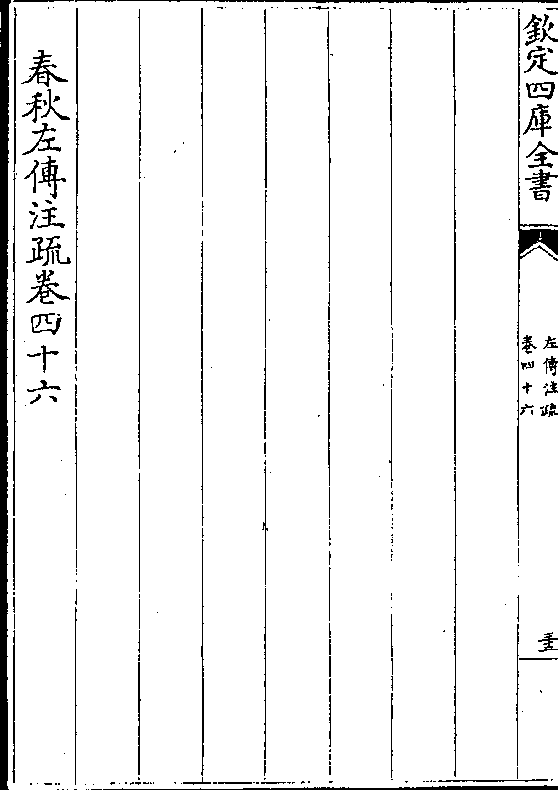 欽定四庫全書
左傳注疏
卷四十六
春秋左傳注疏卷四十六